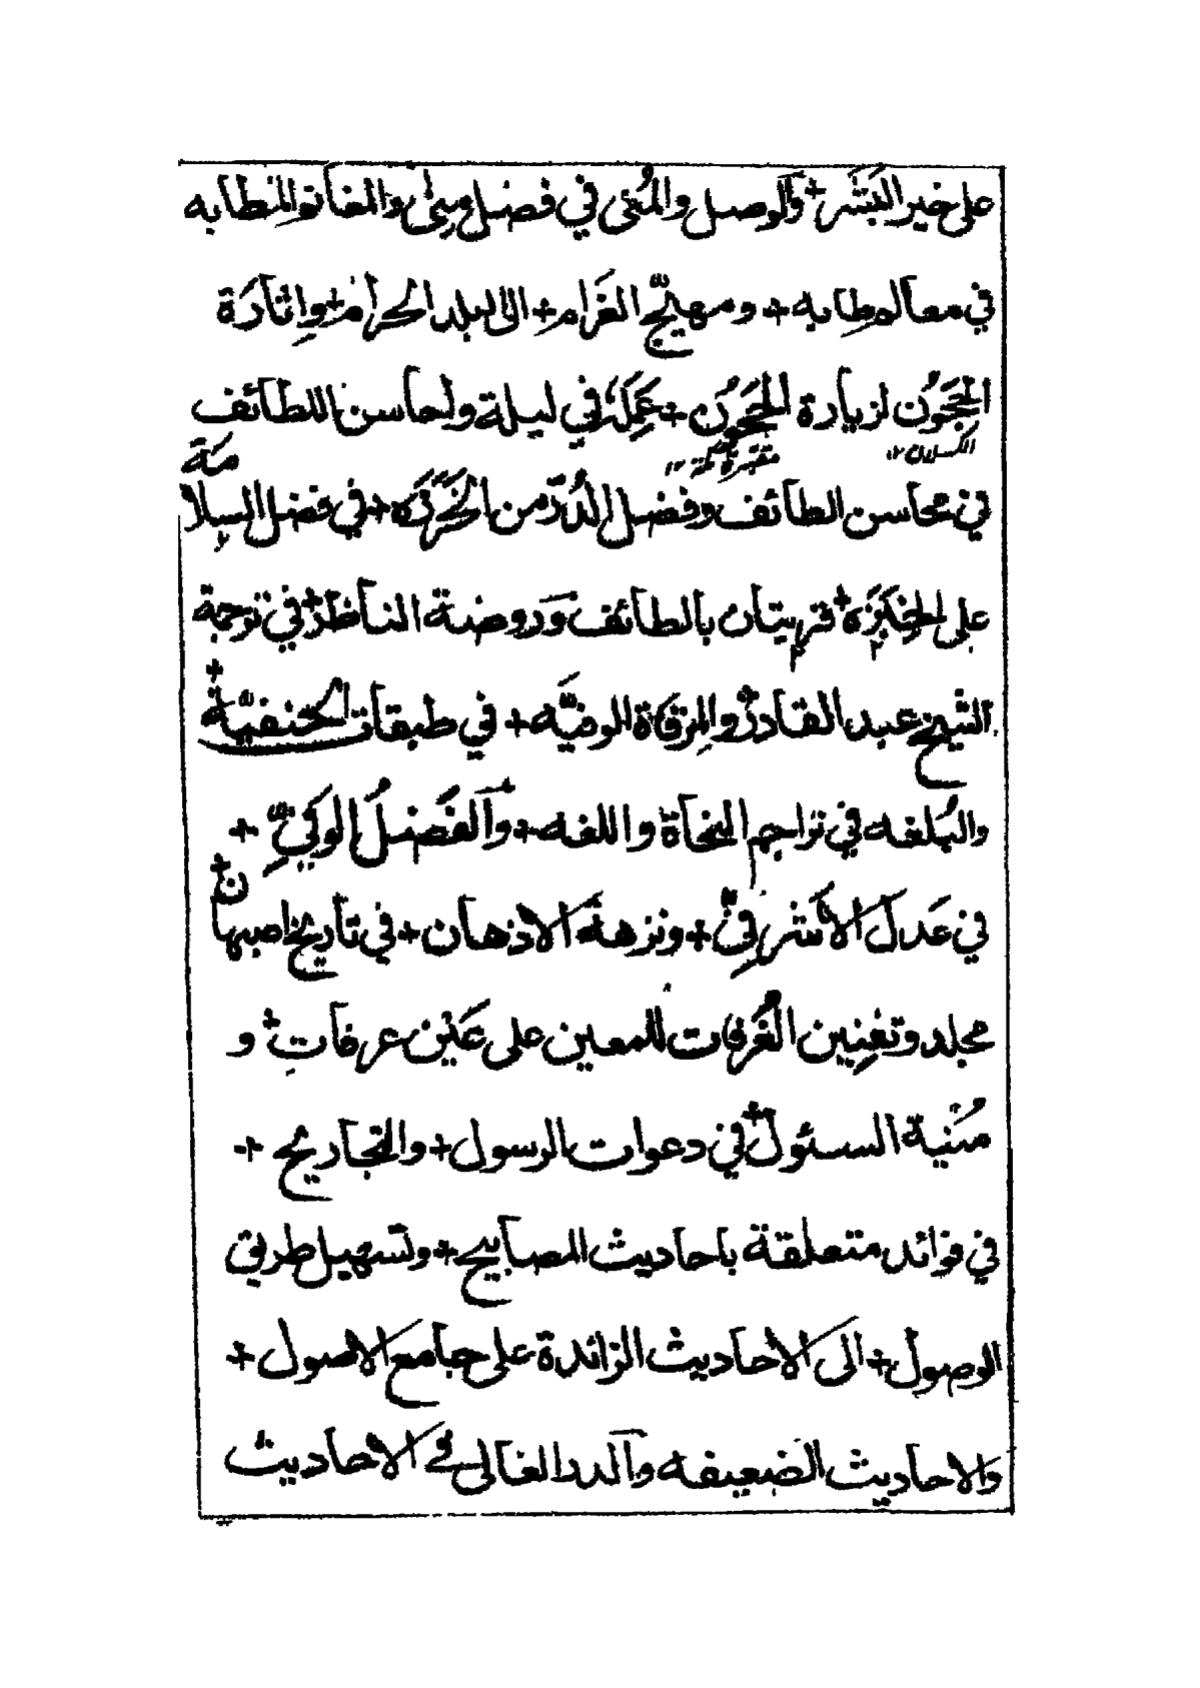 على خير البَشَر + وَالوصل والمُنى في فضل مِنى والمغانم المطابه
في معالم طابه + ومهيّج الغَرام + الى البلد الحرام + وإثارَة
الحَجُون لزيارة الحَجُون + عَمِلَه في ليلة واحاسن اللطائف
الكسلان ١٢ مقبرة مكة ١٢
في محاسن الطائف وفضل الدُرّ من الخَرَزَه + في فضل السلامَة
على الخبَزَه + قريتان بالطائف وَروضة الناظر + في ترجمة
الشيخ عبد القادر + والمِرقاة الوفيَّه + في طبقات الحنفيّة +
والبُلغه في تراجم النحاة واللغه + وَالفَضلُ الوَفيِّ +
في عَدل الأشرفيِّ + ونزهة الاذهان + في تاريخ اصبهان +
مجلد وتعيين الغُرفات للمعين على عَيْن عرفاتِ + و
مُنْية السئول + في دعوات الرسول + والتجاريح +
في فوائد متعلقة باحاديث المصابيح + وتسهيل طريق
الوصول + الى الاحاديث الزائدة على جامع الاصول +
والاحاديث الضعيفه وَالدر الغالى في الاحاديث